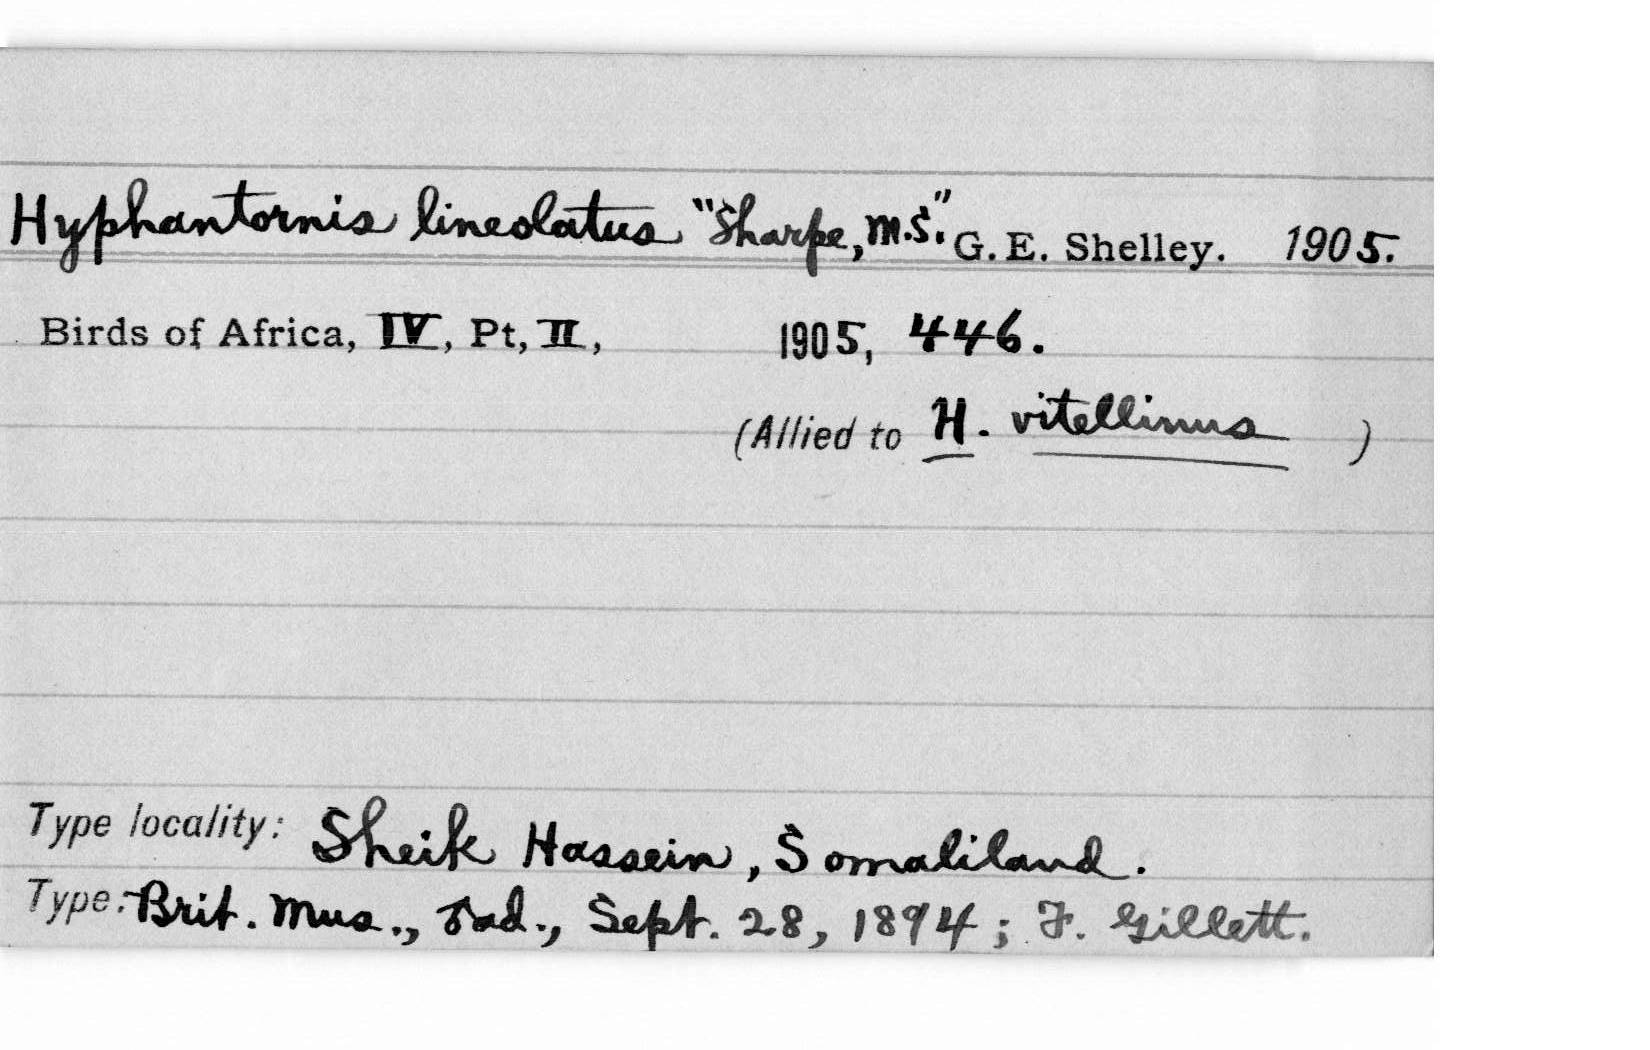 Hyphantornis lineolatus "Sharpe, M.S." G. E. Shelley. 1905.
Birds of Africa, IV, Pt, II, 1905, 446.
(Allied to H. vitellinus )
Type locality: Sheik Hassein, Somaliland.
Type: Brit. Mus., ♂ ad., Sept. 28, 1894; F. Gillett.